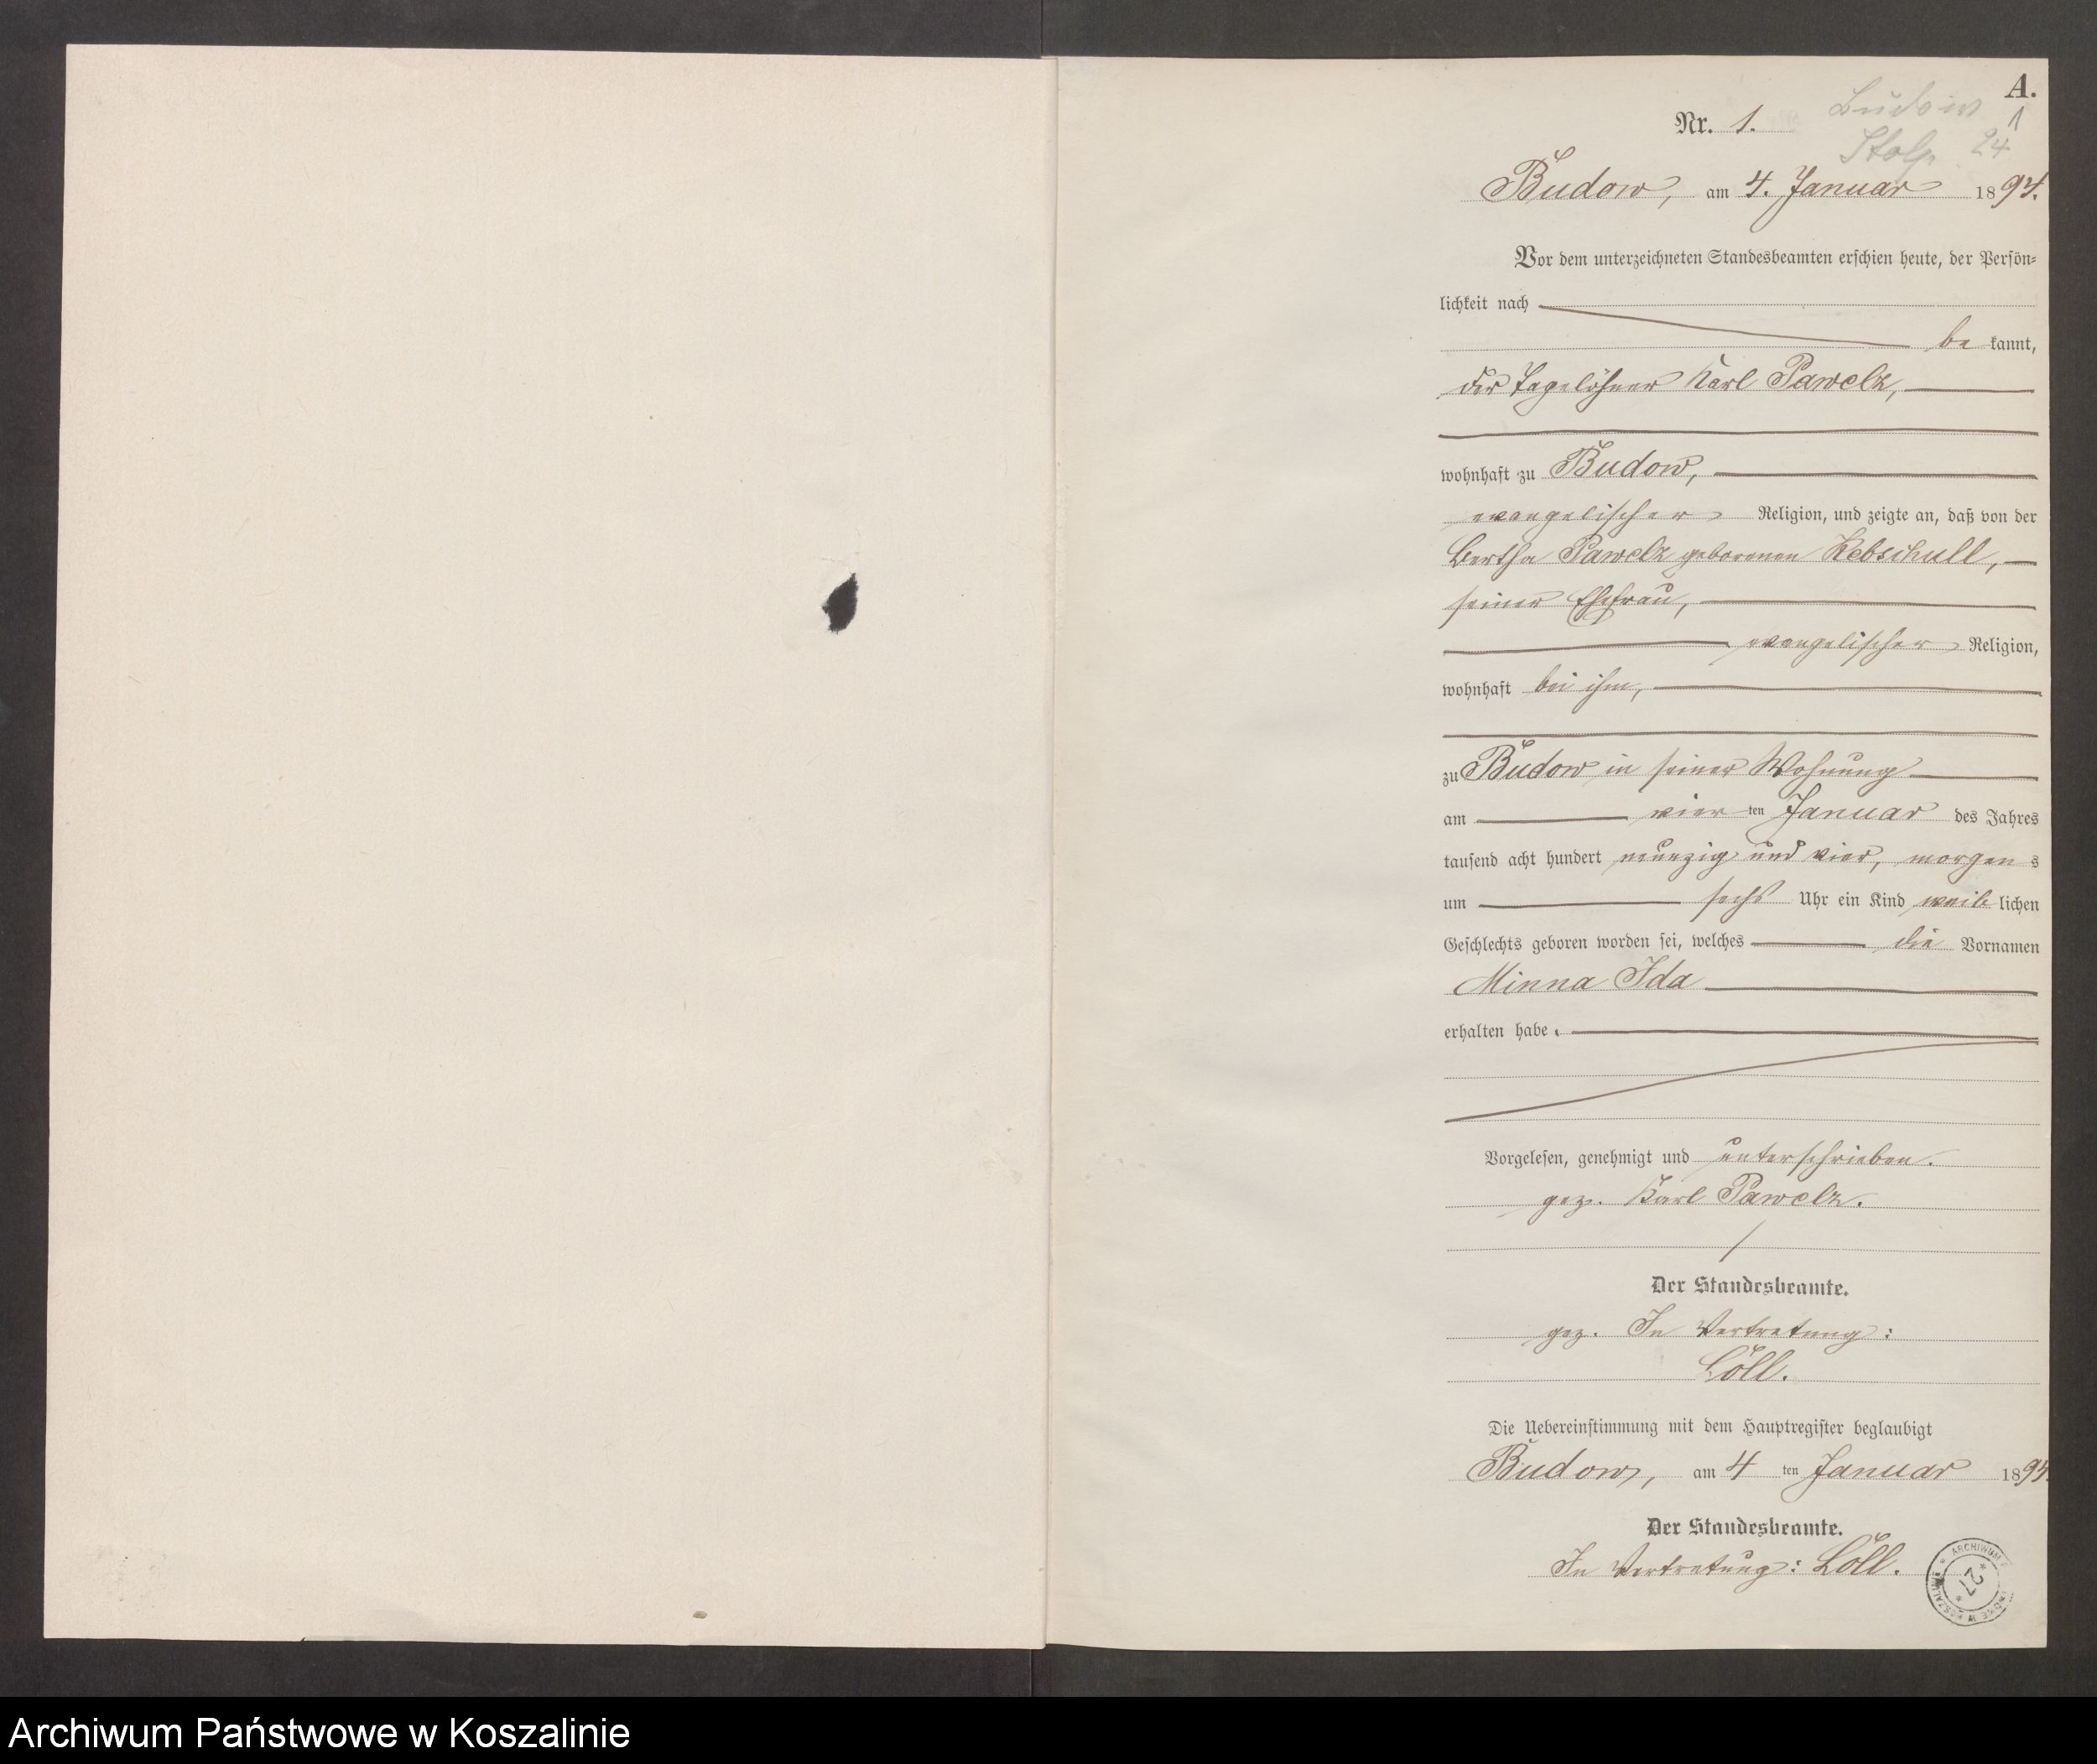 A.
Nr. 1.
Budow
1
Stolp 24
Budow, am 4. Januar 1894.
Vor dem unterzeichneten Standesbeamten erschien heute, der Persön-
lichkeit nach
be kannt,
der Tagelöhner Karl Pawelz,
wohnhaft zu Budow,
evangelischer Religion, und zeigte an, daß von der
Bertha Pawelz geborenen Kebschull,
seiner Ehefrau,
evangelischer Religion,
wohnhaft bei ihm,
zu Budow in seiner Wohnung
am vier ten Januar des Jahres
tausend acht hundert neunzig und vier, morgen s
um sechs Uhr ein Kind weib lichen
Geschlechts geboren worden sei, welches die Vornamen
Minna Ida
erhalten habe.
Vorgelesen, genehmigt und unterschrieben.
gez. Karl Pawelz.
Der Standesbeamte.
gez. In Vertretung:
Löll.
Die Uebereinstimmung mit dem Hauptregister beglaubigt
Budow, am 4 ten Januar 1894.
Der Standesbeamte.
In Vertretung: Löll.
ARCHIWUM
* 27 *
Archiwum Państwowe w Koszalinie